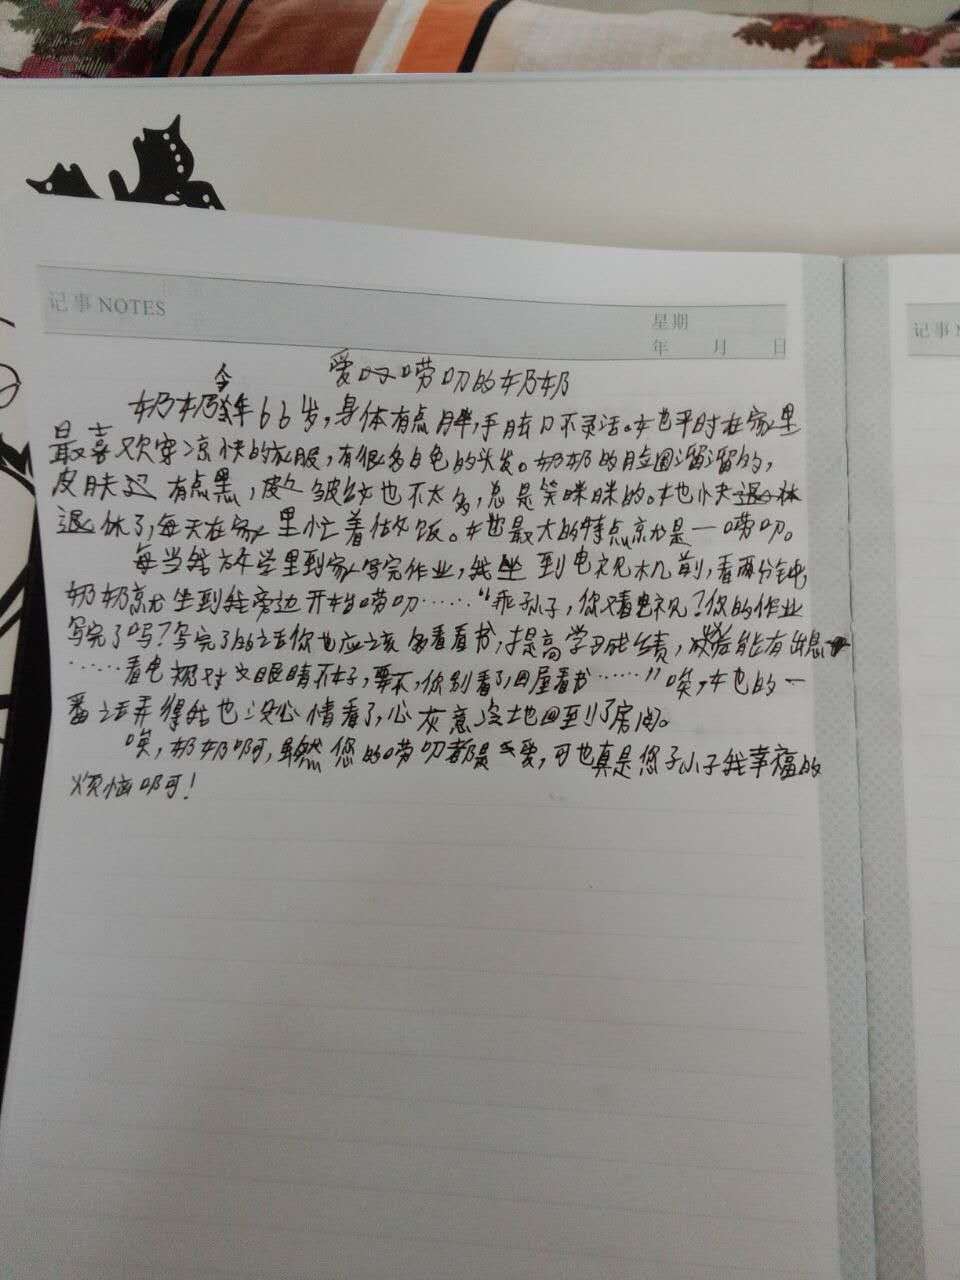 记事 NOTES
星期
年 月 日
记事
爱唠叨的奶奶
奶奶今年66岁,身体有点胖,手脚口不灵活。她平时在家里
最喜欢穿凉快的衣服,有很多白色的头发。奶奶的脸圆溜溜的,
皮肤 有点黑,皮肤皱纹也不太多,总是笑咪咪的。她
退休了,每天在家里忙着做饭。她最大的特点就是一唠叨。
每当我放学里到家写完作业,我坐到电视机前,看两分钟,
奶奶就坐到我旁边开始唠叨……“乖孙子,你又看电视?你的作业
写完了吗?写完了的话你也应该多看看书,提高学习成绩,以后能有出息
……看电视对 眼睛不好,要不,你别看了回屋看书……”唉,她的一
番话弄得我也没心情看了,心灰意冷地回到了房间。
唉,奶奶啊,虽然您的唠叨都是爱,可也真是您 小子我幸福的
烦恼啊!